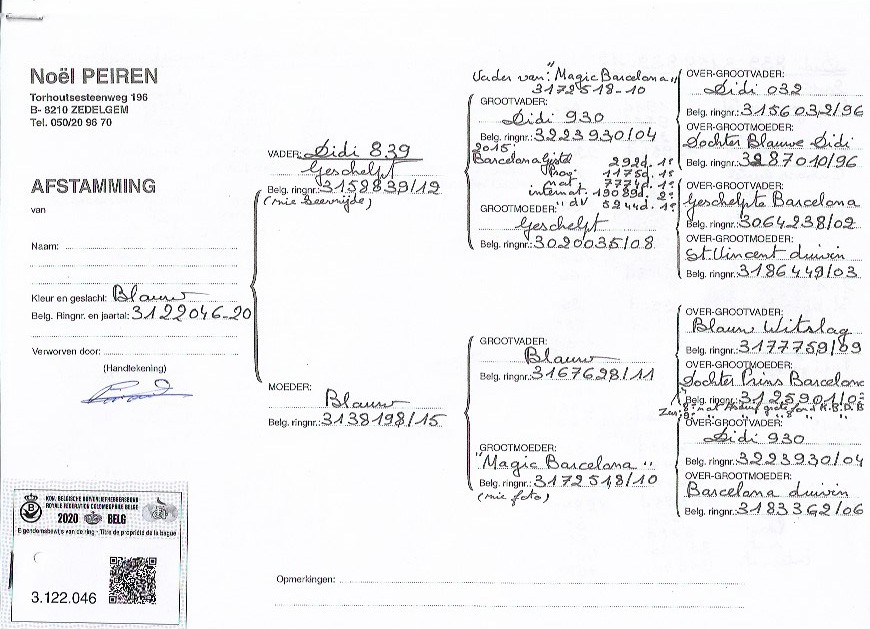 Noël PEIREN
Torhoutsesteenweg 196
B- 8210 ZEDELGEM
Tel. 050/20 96 70
AFSTAMMING
van
Naam:
Kleur en geslacht: Blauw
Belg. Ringnr. en jaartal: 3122046-20
Verworven door:
(Handtekening)
KON. BELGISCHE DUIVENLIEFHEBBERSBOND
ROYALE FEDERATION COLOMBOPHILE BELGE
2020 BELG
Eigendomsbewijs van de ring - Titre de propriété de la bague
3.122.046
VADER: Didi 839
Geschelpt
Belg. ringnr.: 3158839/12
MOEDER:
Blauw
Belg. ringnr.: 3138198/15
Vader van: "Magic Barcelona"
3172518-10
GROOTVADER:
Didi 930
Belg. ringnr.: 3223930/04
2015:
Barcelona Gistel 292d. 1e
1175d. 1e
nat 7771d. 1e
internat. 19089d. 2e
" dv 5244d. 1e
GROOTMOEDER:
Geschelpt
Belg. ringnr.: 3020035/08
GROOTVADER:
Blauw
Belg. ringnr.: 3167628/11
GROOTMOEDER:
"Magic Barcelona"
Belg. ringnr.: 3172518/10
(zie foto)
OVER-GROOTVADER:
Didi 032
Belg. ringnr.: 3156032/96
OVER-GROOTMOEDER:
Dochter Blauwe Didi
Belg. ringnr.: 3287010/96
OVER-GROOTVADER:
Geschelpte Barcelona
Belg. ringnr.: 3064238/02
OVER-GROOTMOEDER:
St. Vincent duivin
Belg. ringnr.: 3186449/03
OVER-GROOTVADER:
Blauw Witslag
Belg. ringnr.: 3177759/09
OVER-GROOTMOEDER:
Dochter Prins Barcelona
Belg. ringnr.: 3125901/0
OVER-GROOTVADER:
Didi 930
Belg. ringnr.: 3223930/04
OVER-GROOTMOEDER:
Barcelona duivin
Belg. ringnr.: 3183362/06
Opmerkingen: